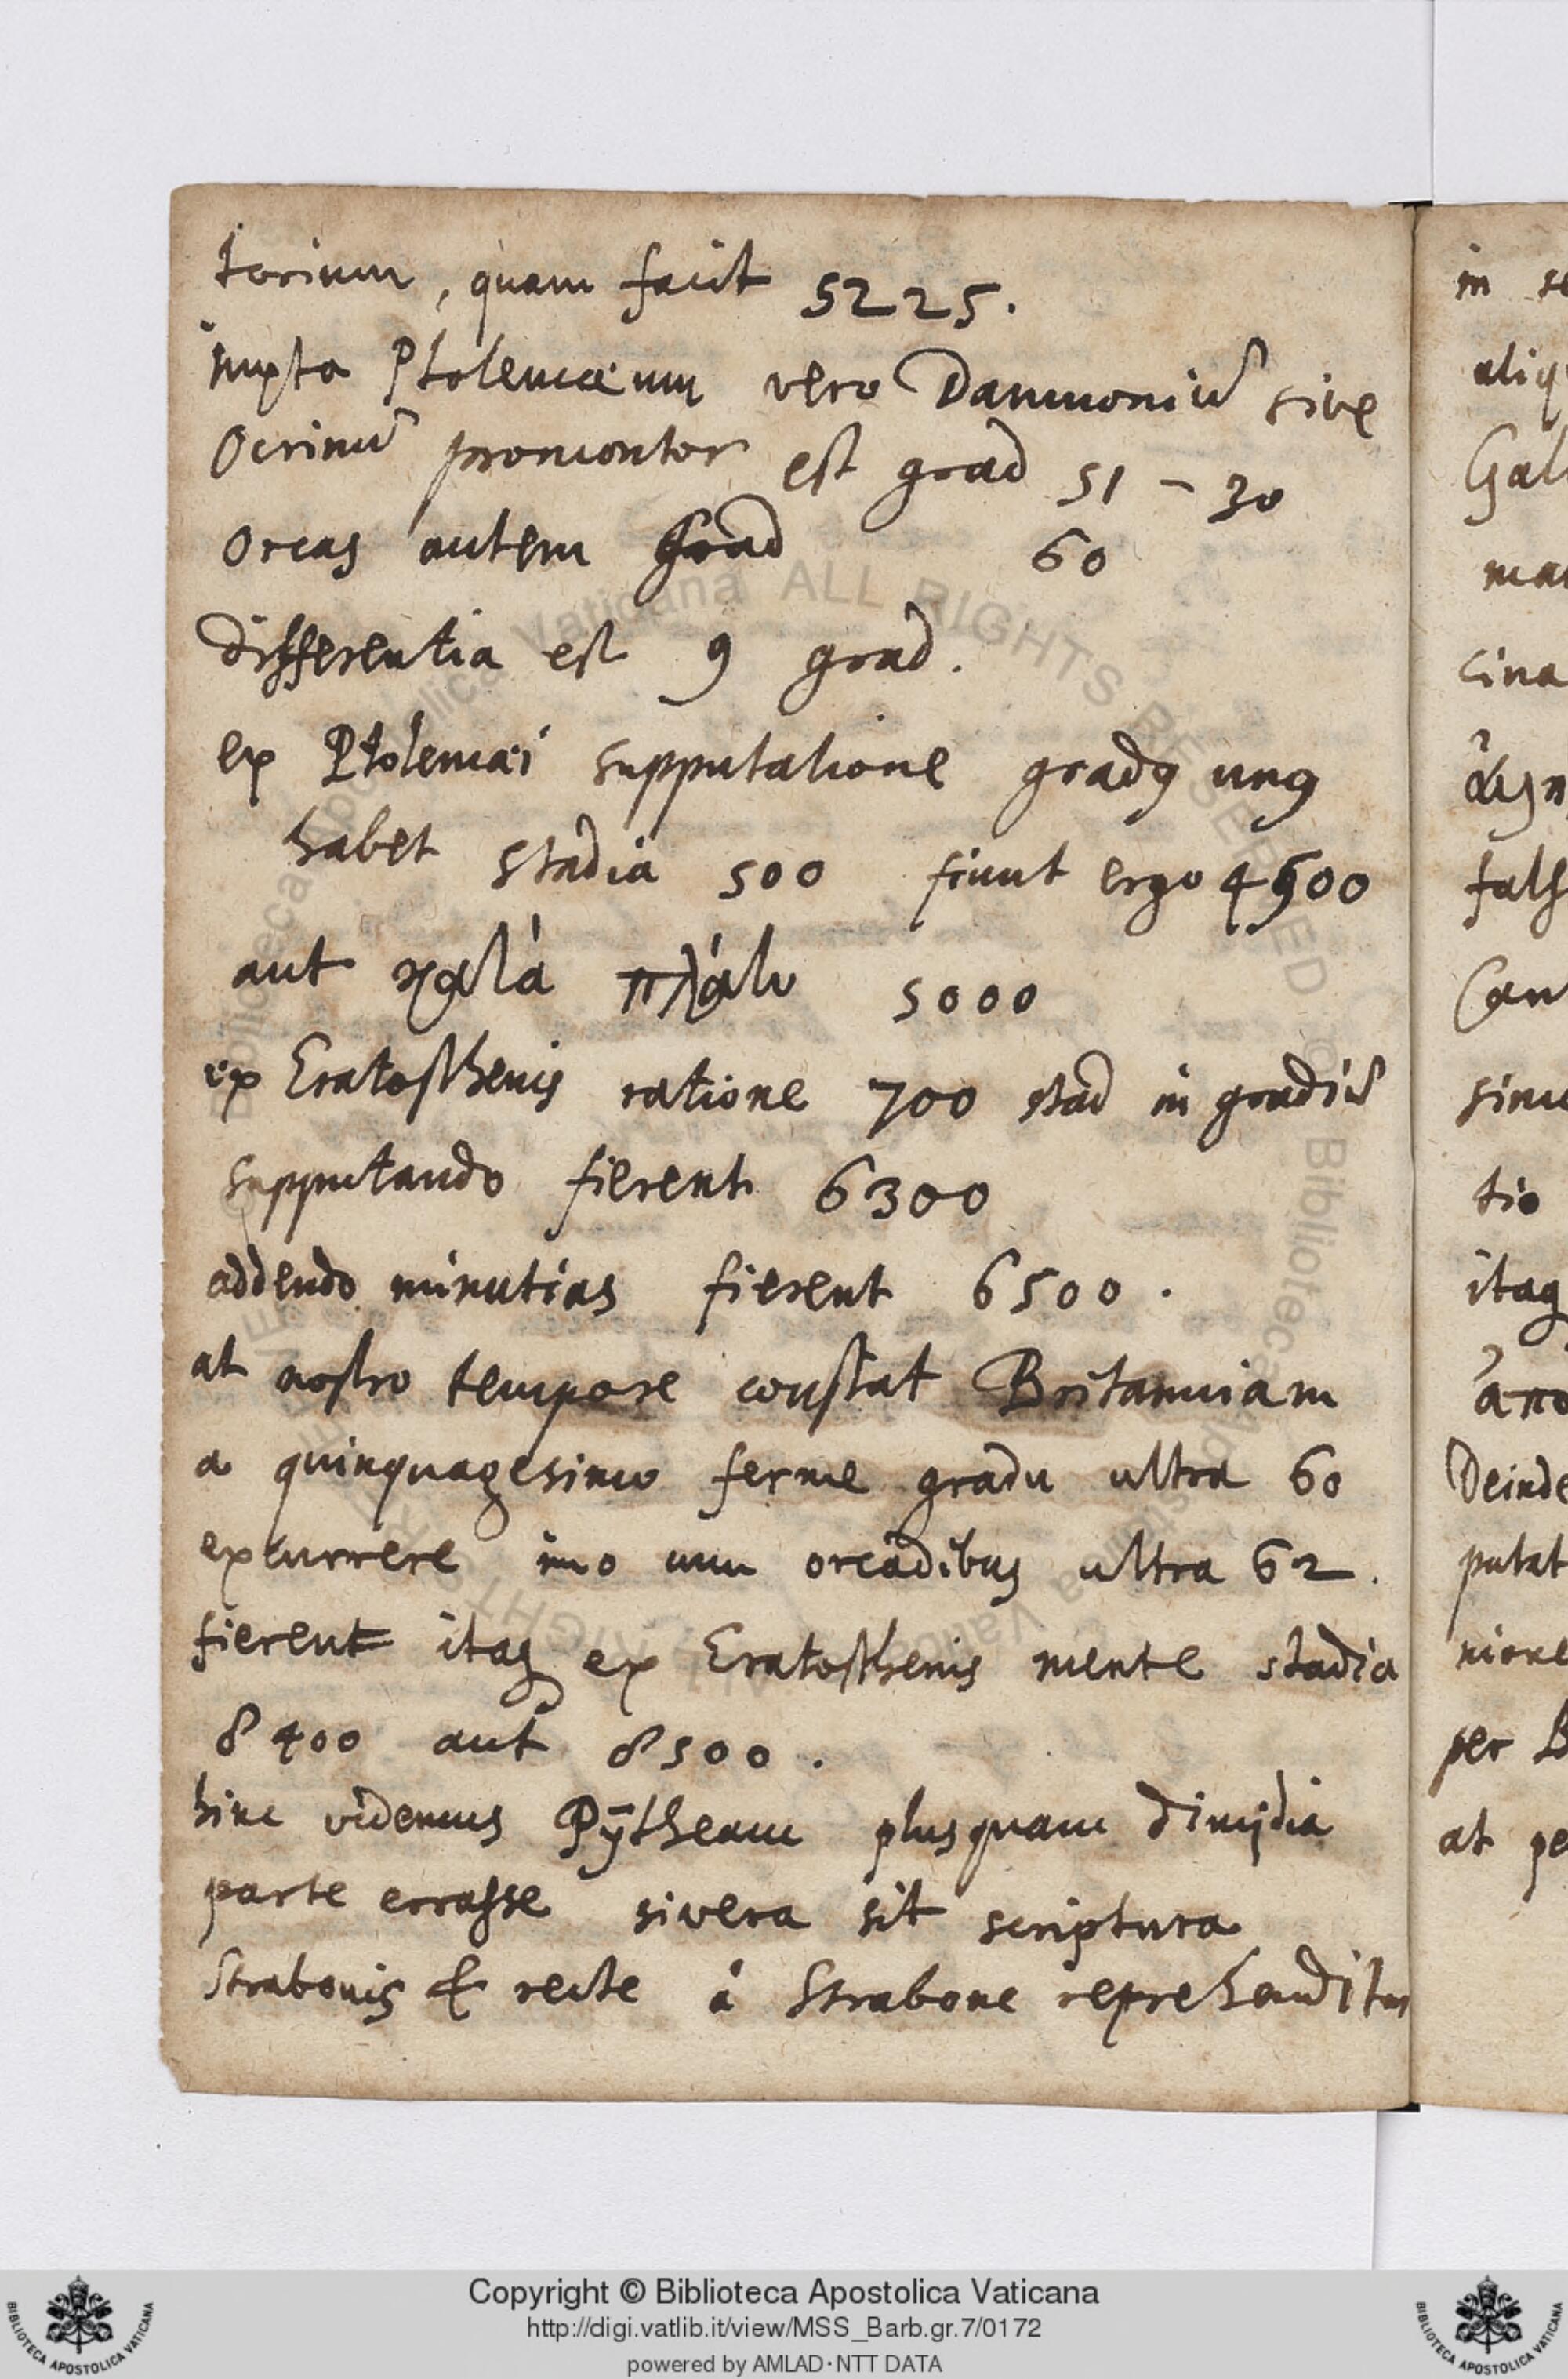 torium, quam facit 5225.
iuxta Ptolemæum vero Damnoniũ sive
Ocrinũ promontor est grad 51 - 30
Orcas autem Grad 60
differentia est 9 grad.
ex Ptolemæi supputatione gradꝰ unꝰ
habet stadia 500 fiunt ergo 4500
aut κατὰ πλάτυ 5000
ex Eratosthenis ratione 700 stad in gradũ
supputando fierent 6300
addendo minutias fierent 6500.
at nostro tempore constat Britanniam
a quinquagesimo ferme gradu ultra 60
excurrere imo cum orcadibus ultra 62.
fierent itaq ex Eratosthenis mente stadia
8400 aut 8500.
hinc videmus Pÿtheam plusquam dimidia
parte errasse si vera sit scriptura
Strabonis & recte à Strabone reprehenditur
in
Gal
cina
fals
tio
itaq
Deinde
putat
per B
at pe
Copyright © Biblioteca Apostolica Vaticana
http://digi.vatlib.it/view/MSS_Barb.gr.7/0172
powered by AMLAD·NTT DATA
BIBLIOTECA APOSTOLICA VATICANA
BIBLIOTECA APOSTOLICA VATICANA